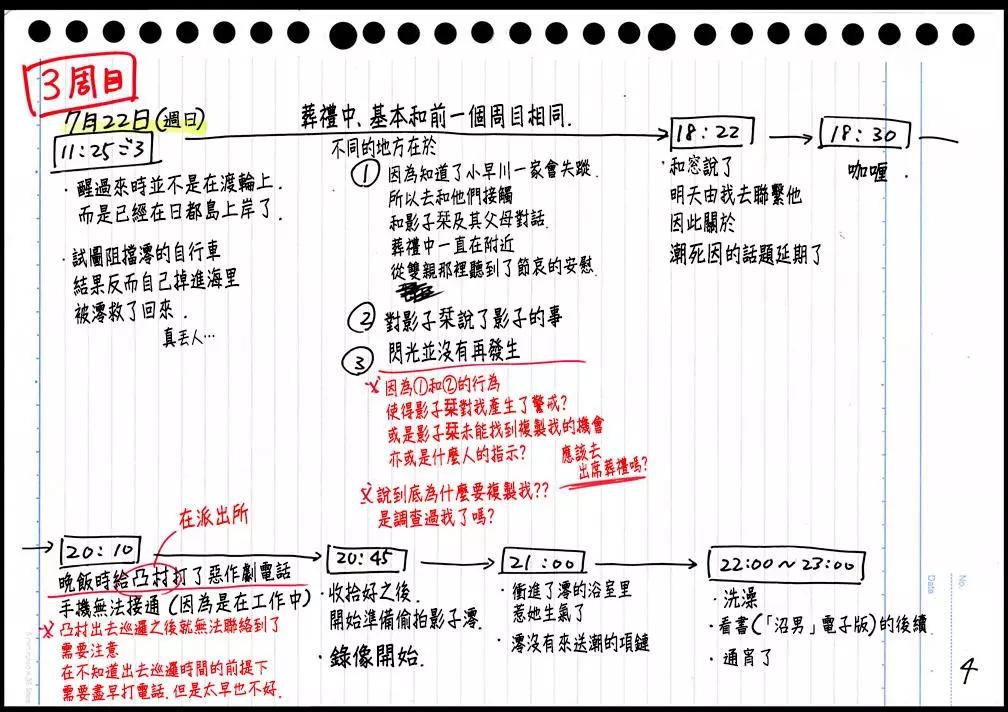 3周目
7月22日(週日)
11:25ごろ
・醒過來時並不是在渡輪上.
而是已經在日都島上岸了.
・試圖阻擋澪的自行車
結果反而自己掉進海里
被澪救了回來.
真丟人…
葬禮中、基本和前一個周目相同.
不同的地方在於
① 因為知道了小早川一家會失蹤.
所以去和他們接觸
和影子栞及其父母對話.
葬禮中一直在附近
從雙親那裡聽到了節哀的安慰.
② 對影子栞說了影子的事
③ 閃光並沒有再發生
※因為①和②的行為
使得影子栞對我產生了警戒?
或是影子栞未能找到複製我的機會
亦或是什麼人的指示?
應該去
出席葬禮嗎?
※說到底為什麼要複製我??
是調查過我了嗎?
18:22
・和窓說了
明天由我去聯繫他
因此關於
潮死因的話題延期了
18:30
咖喱.
在派出所
20:10
晚飯時給凸村打了惡作劇電話
手機無法接通(因為是在工作中)
※凸村出去巡邏之後就無法聯絡到了
需要注意
在不知道出去巡邏時間的前提下
需要盡早打電話.但是太早也不好.
20:45
・收拾好之後.
開始準備偷拍影子澪.
・錄像開始.
21:00
・衝進了澪的浴室里
惹她生氣了
・澪沒有來送潮的項鏈
22:00~23:00
・洗澡
・看書(「沼男」電子版)的後續
・通宵了
No.
Data
4